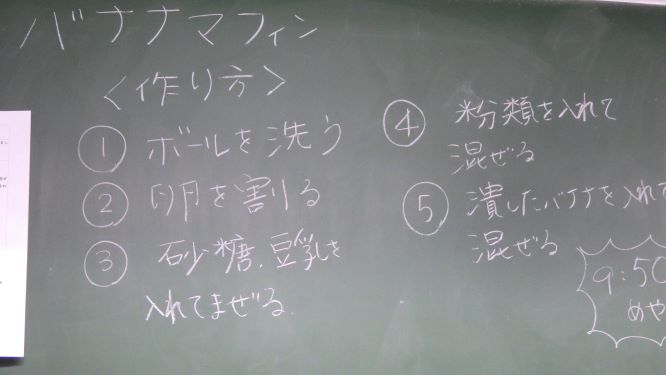 バナナマフィン
<作り方>
① ボールを洗う
② 卵を割りる
③ 砂糖、豆乳を
入れてまぜる.
④ 粉類を入れて
混ぜる
⑤ 潰したバナナを入れて
混ぜる
9:50
めや